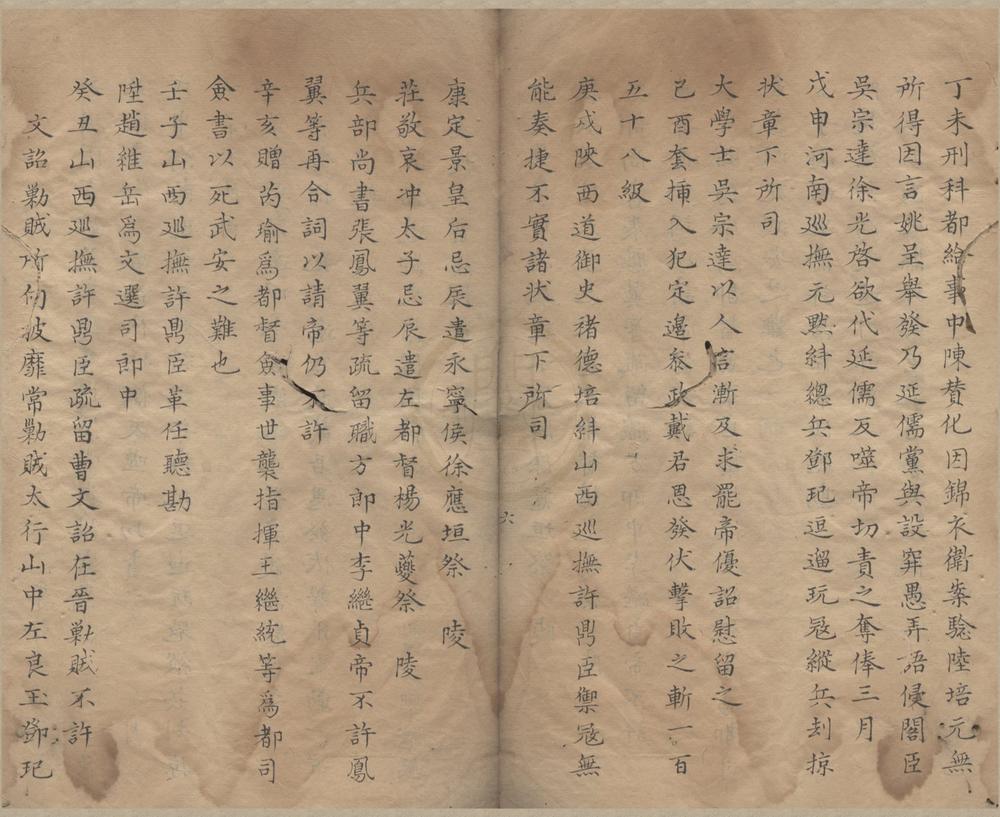 丁未刑科都給事中陳贊化因錦衣衛案驗陸培元無
所得因言姚呈舉發乃延儒黨與設穽愚弄語侵閣臣
吳宗達徐光啓欲代延儒反噬帝切責之奪俸三月
戊申河南巡撫元默糾總兵鄧玘逗遛玩寇縱兵刦掠
狀章下所司
大學士吳宗達以人言漸及求罷帝優詔慰留之
己酉套插入犯定邊叅政戴君恩發伏擊敗之斬一百
五十八級
庚戌陝西道御史禇德培糾山西巡撫許鼎臣禦寇無
能奏捷不實諸狀章下所司
六
康定景皇后忌辰遣永寧侯徐應垣祭 陵
莊敬哀冲太子忌辰遣左都督楊光夔祭 陵
兵部尚書張鳳翼等疏留職方郎中李繼貞帝不許鳳
翼等再合詞以請帝仍不許
辛亥贈芮瑜爲都督僉事世襲指揮王繼統等爲都司
僉書以死武安之難也
壬子山西巡撫許鼎臣革任聽勘
陞趙維岳爲文選司郎中
癸丑山西巡撫許鼎臣疏留曹文詔在晉勦賊不許
文詔勦賊所向披靡常勦賊太行山中左良玉鄧玘